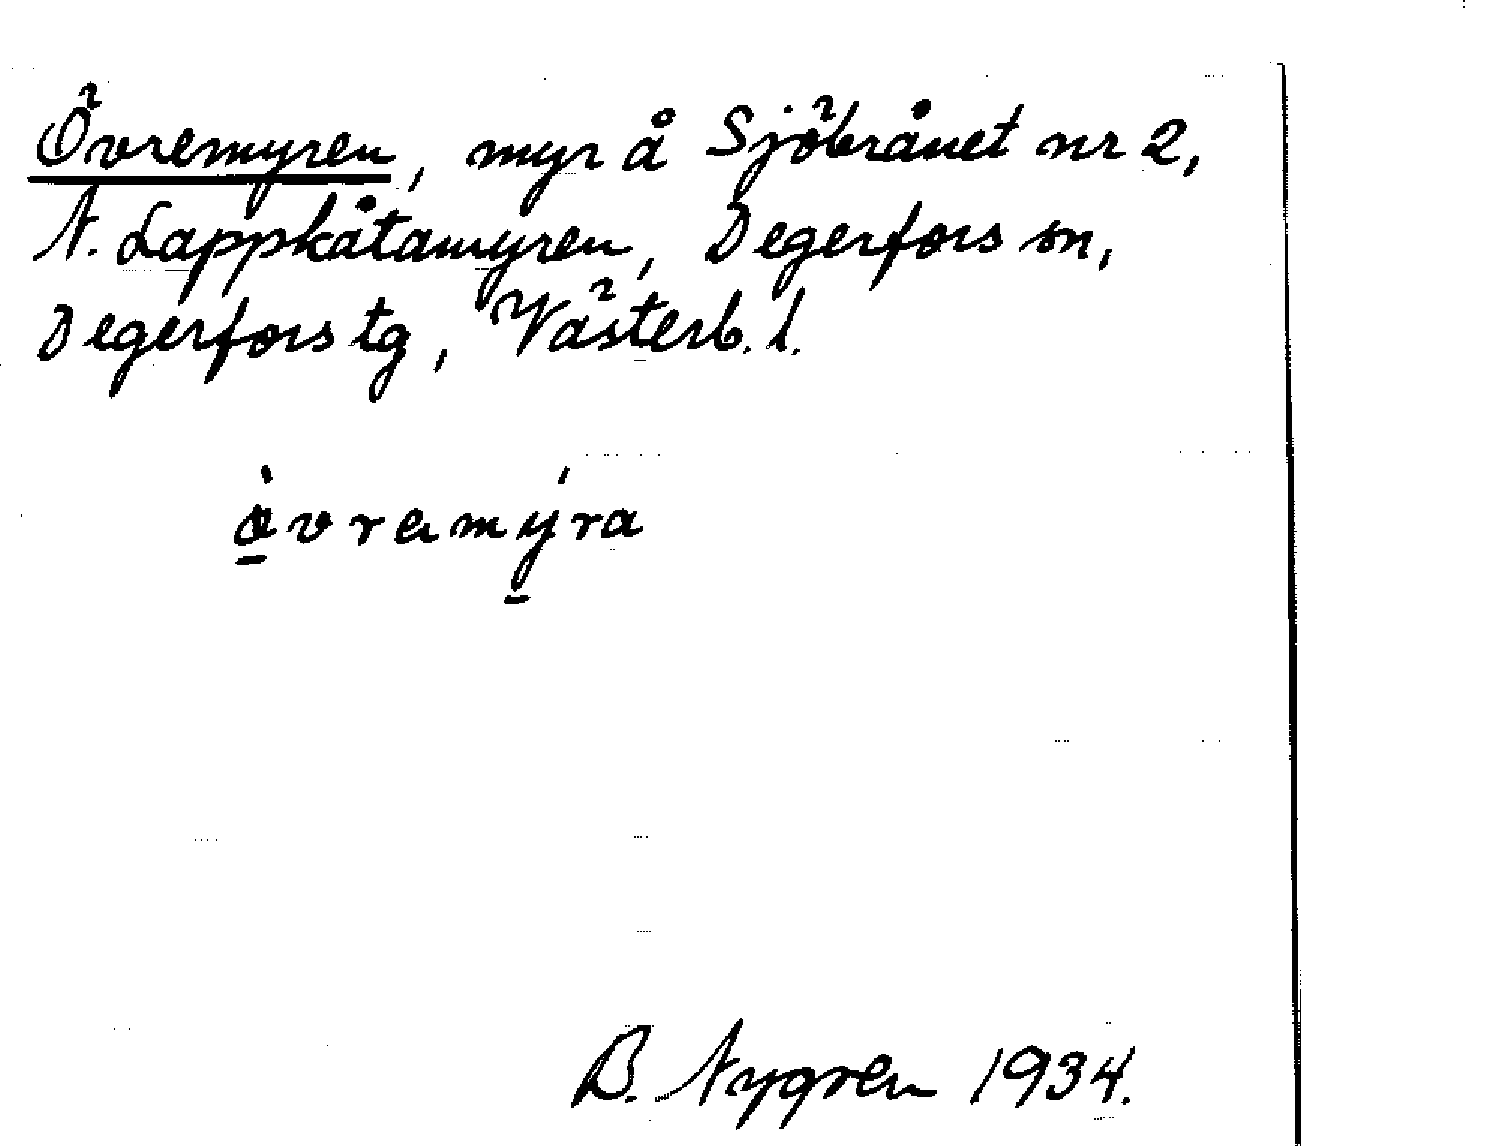 Övremyren, myr å Sjöbrånet nr 2,
N. Lappkåtamyren, Degerfors sn,
Degerfors tg, Västerb. l.
ø̱̀vramý̱ra
B. Nygren 1934.